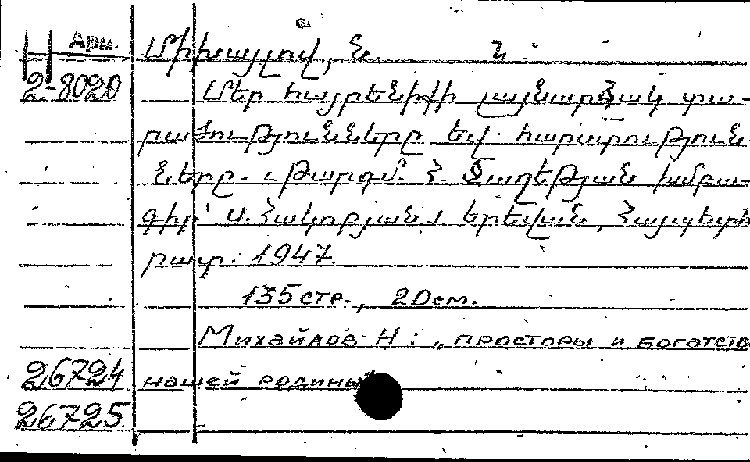 Арм. Միխայլով, Ն. Ն
2-8020 Մեր հայրենիքի լայնարձակ տա-
րածությունները եվ հարստություն
ները. Թարգմ. Հ. Ծաղեթյան խմբա-
գիր՝ Ս. Հակոբյան. Երեվան, Հայպետհ
րատ. 1947
135 стр., 20 см.
Михайлов Н: „просторы и богатств
26724 нашей родины"
26725